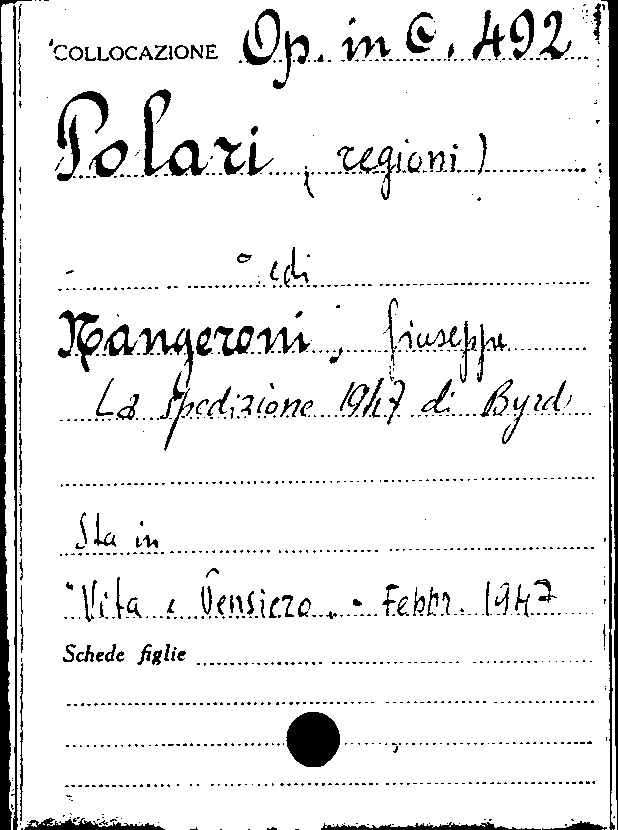 COLLOCAZIONE Op. in C. 492
Polari (regioni)
Vedi
Nangeroni, Giuseppe
La spedizione 1947 di Byrd
Sta in
"Vita e Pensiero" - Febbr. 1947
Schede figlie